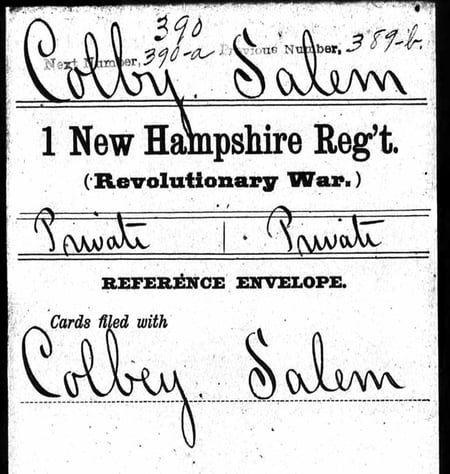 390
Next Number, 390-a Previous Number, 389-b.
Colby, Salem
1 New Hampshire Reg't.
(Revolutionary War.)
Private | Private
REFERENCE ENVELOPE.
Cards filed with
Colbey, Salem